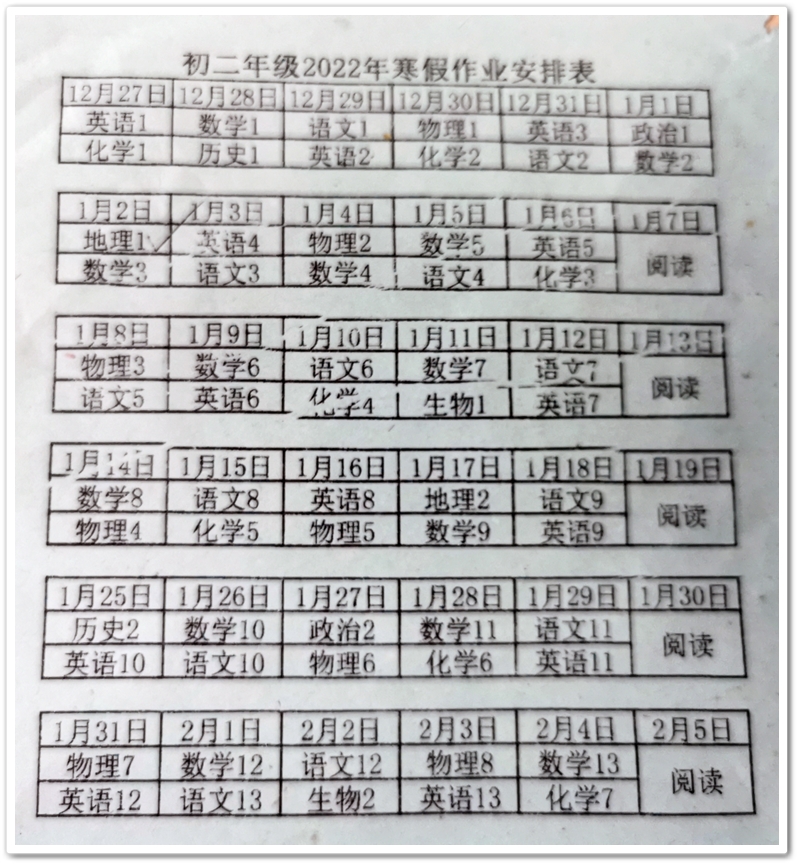 初二年级2022年寒假作业安排表
12月27日 12月28日 12月29日 12月30日 12月31日 1月1日
英语1 数学1 语文1 物理1 英语3 政治1
化学1 历史1 英语2 化学2 语文2 数学2
1月2日 1月3日 1月4日 1月5日 1月6日 1月7日
地理1 英语4 物理2 数学5 英语5 阅读
数学3 语文3 数学4 语文4 化学3
1月8日 1月9日 1月10日 1月11日 1月12日 1月13日
物理3 数学6 语文6 数学7 语文7 阅读
语文5 英语6 化学4 生物1 英语7
1月14日 1月15日 1月16日 1月17日 1月18日 1月19日
数学8 语文8 英语8 地理2 语文9 阅读
物理4 化学5 物理5 数学9 英语9
1月25日 1月26日 1月27日 1月28日 1月29日 1月30日
历史2 数学10 政治2 数学11 语文11 阅读
英语10 语文10 物理6 化学6 英语11
1月31日 2月1日 2月2日 2月3日 2月4日 2月5日
物理7 数学12 语文12 物理8 数学13 阅读
英语12 语文13 生物2 英语13 化学7